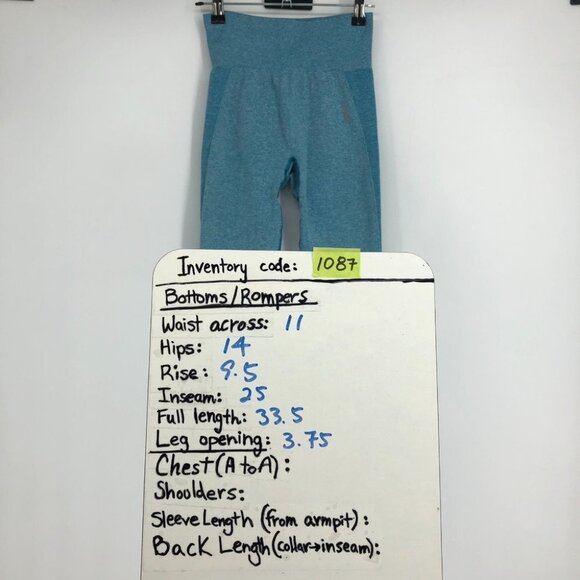 Inventory code: 1087
Bottoms/Rompers
Waist across: 11
Hips: 14
Rise: 9.5
Inseam: 25
Full length: 33.5
Leg opening: 3.75
Chest (A to A):
Shoulders:
Sleeve Length (from armpit):
Back Length (collar→inseam):